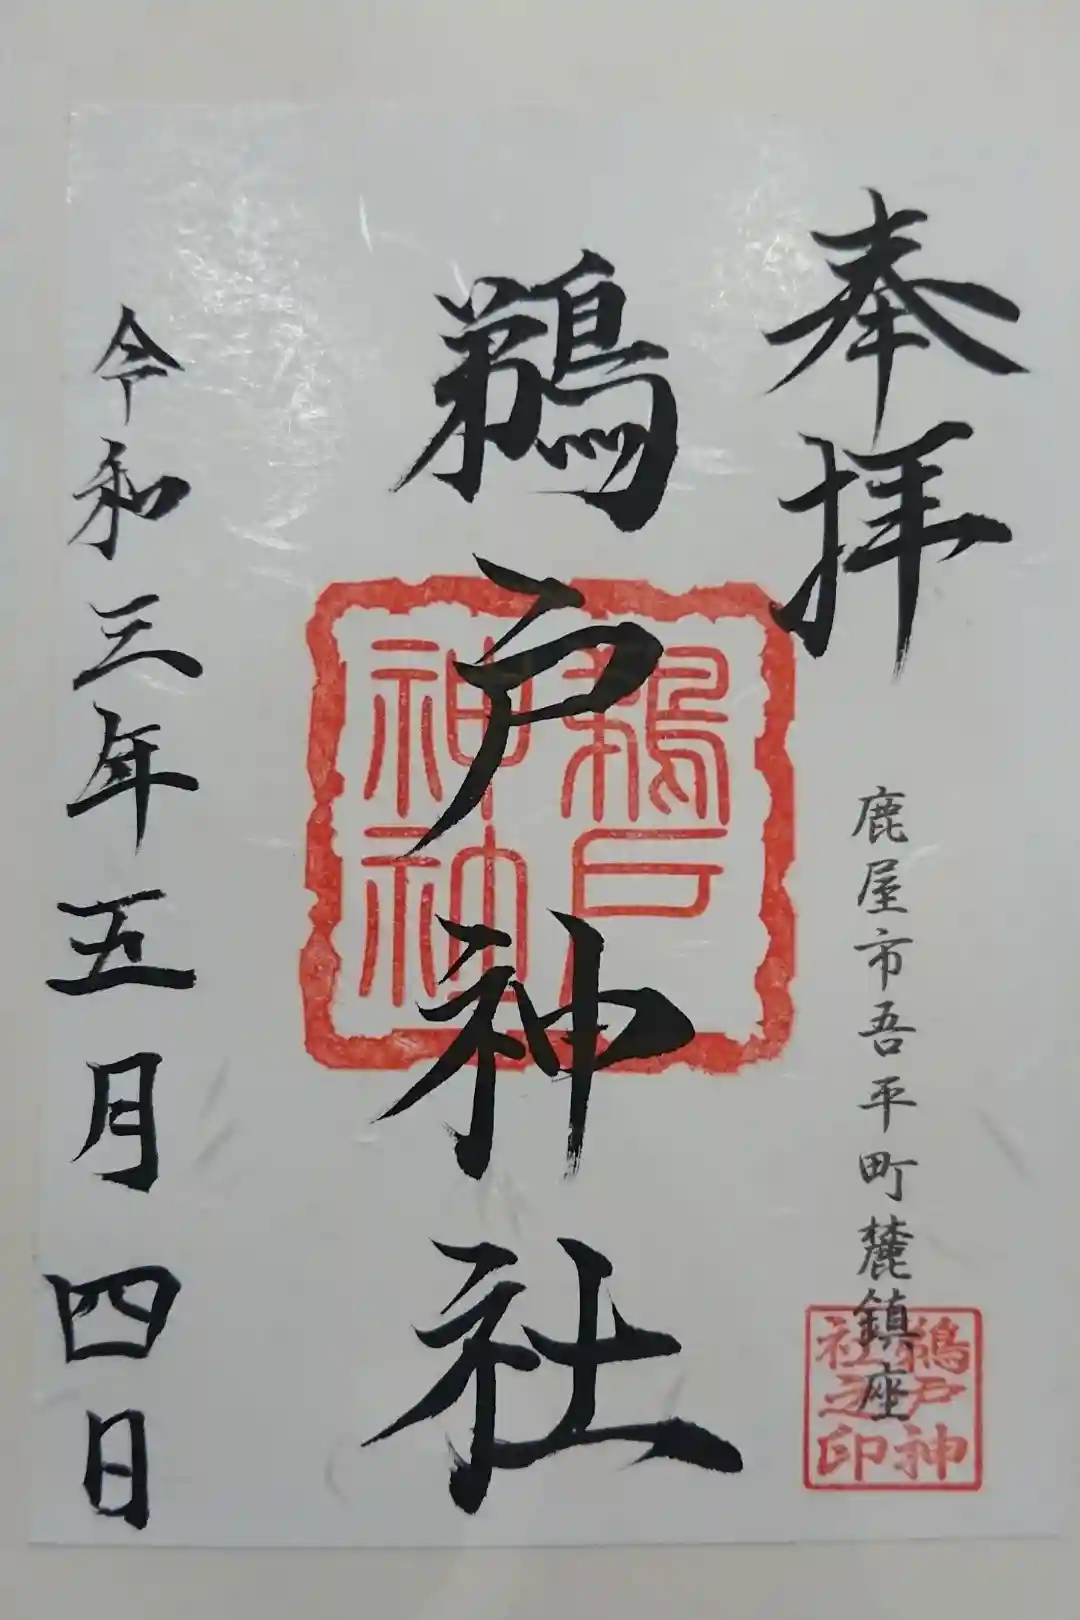 奉拝
鹿屋市吾平町麓鎮座
鵜戸神社
令和三年五月四日
鵜戸神社
鵜戸神社之印